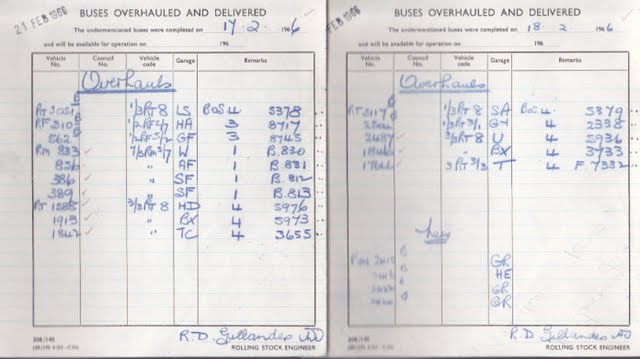 21 FEB 1966
BUSES OVERHAULED AND DELIVERED
The undermentioned buses were completed on 17.2. 1966
and will be available for operation on 196
Vehicle No. Council No. Vehicle code Garage Remarks
Overhauls
RT 3051 1/3RT8 LS BOS 4 5378
RF 310 HA 3 8717
562 GF 3 8745
RM 833 W 1 B.830
836 " AF 1 B.831
386 " SF 1 B.812
389 " SF 1 B.813
RT 1588 3/3RT 8 HD 4 5976
1913 " BX 4 5973
1842 TC 4 3655
R.D.
ROLLING STOCK ENGINEER
FEB 1966
BUSES OVERHAULED AND DELIVERED
The undermentioned buses were completed on 18.2. 1966
and will be available for operation on 196
Vehicle No. Council No. Vehicle code Garage Remarks
Overhauls
RT 3117 1/3RT8 SA BOS 4 5379
4 2338
2487 3/3RT8 U 4 5936
" BX 4 3733
3RT 3/3 T 4 F.7332
New
GR
HE
GR
GR
R.D.
ROLLING STOCK ENGINEER